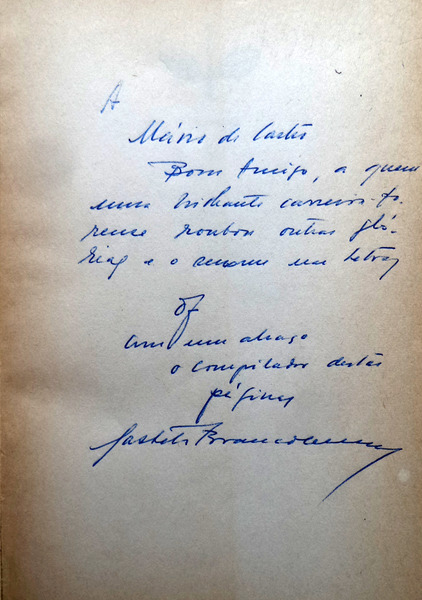 A
Mário de Castro
Bom Amigo, a quem
uma brilhante carreira fo-
rense roubou outras gló-
rias e o renome nas letras
of
com um abraço
o compilador destas
páginas
Castelo Branco